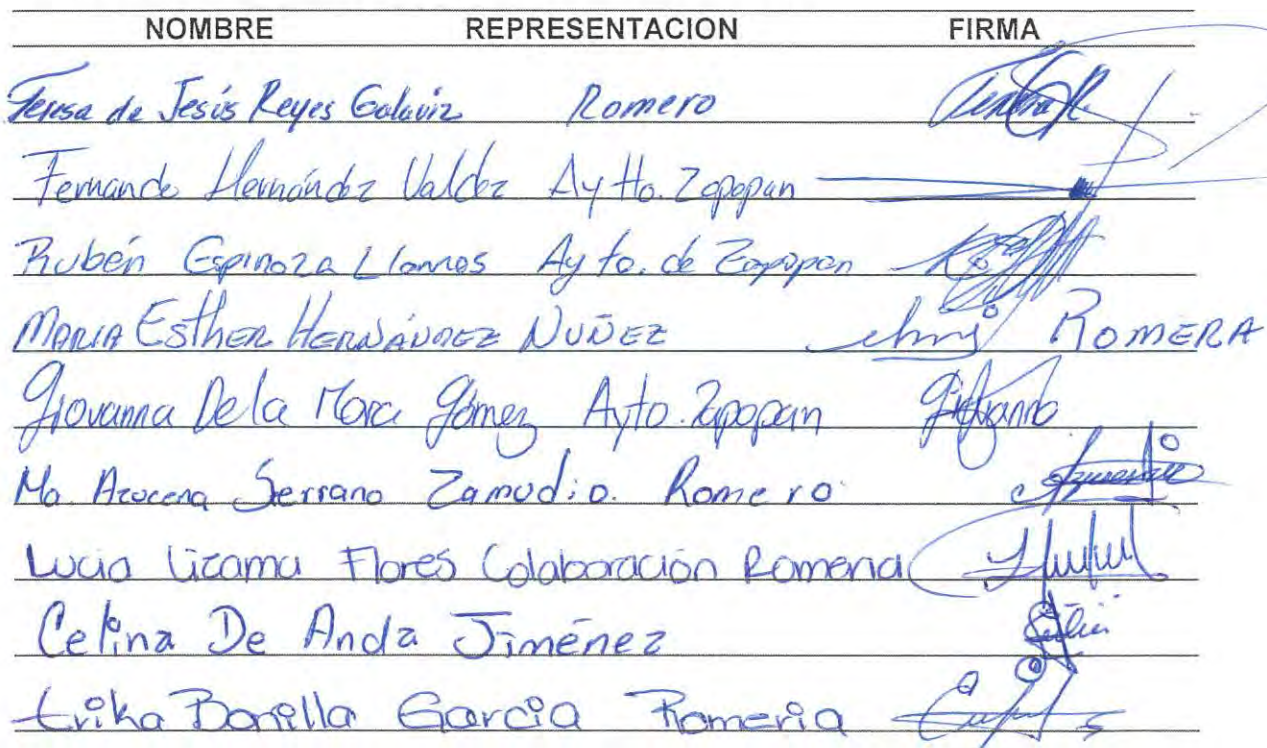 NOMBRE REPRESENTACION FIRMA
Teresa de Jesús Reyes Galaviz Romero
Fernando Hernández Valdez Aytto. Zapopan
Rubén Espinoza Llamas Ayto. de Zapopan
MARIA ESTHER HERNÁNDEZ NUÑEZ ROMERA
Giovanna De la Mora Gómez Ayto. Zapopan Giovanna
Ma. Azucena Serrano Zamudio. Romero Azucena
Lucia Lizama Flores Colaboración Romeria
Celina De Anda Jiménez
Erika Bonilla García Romeria